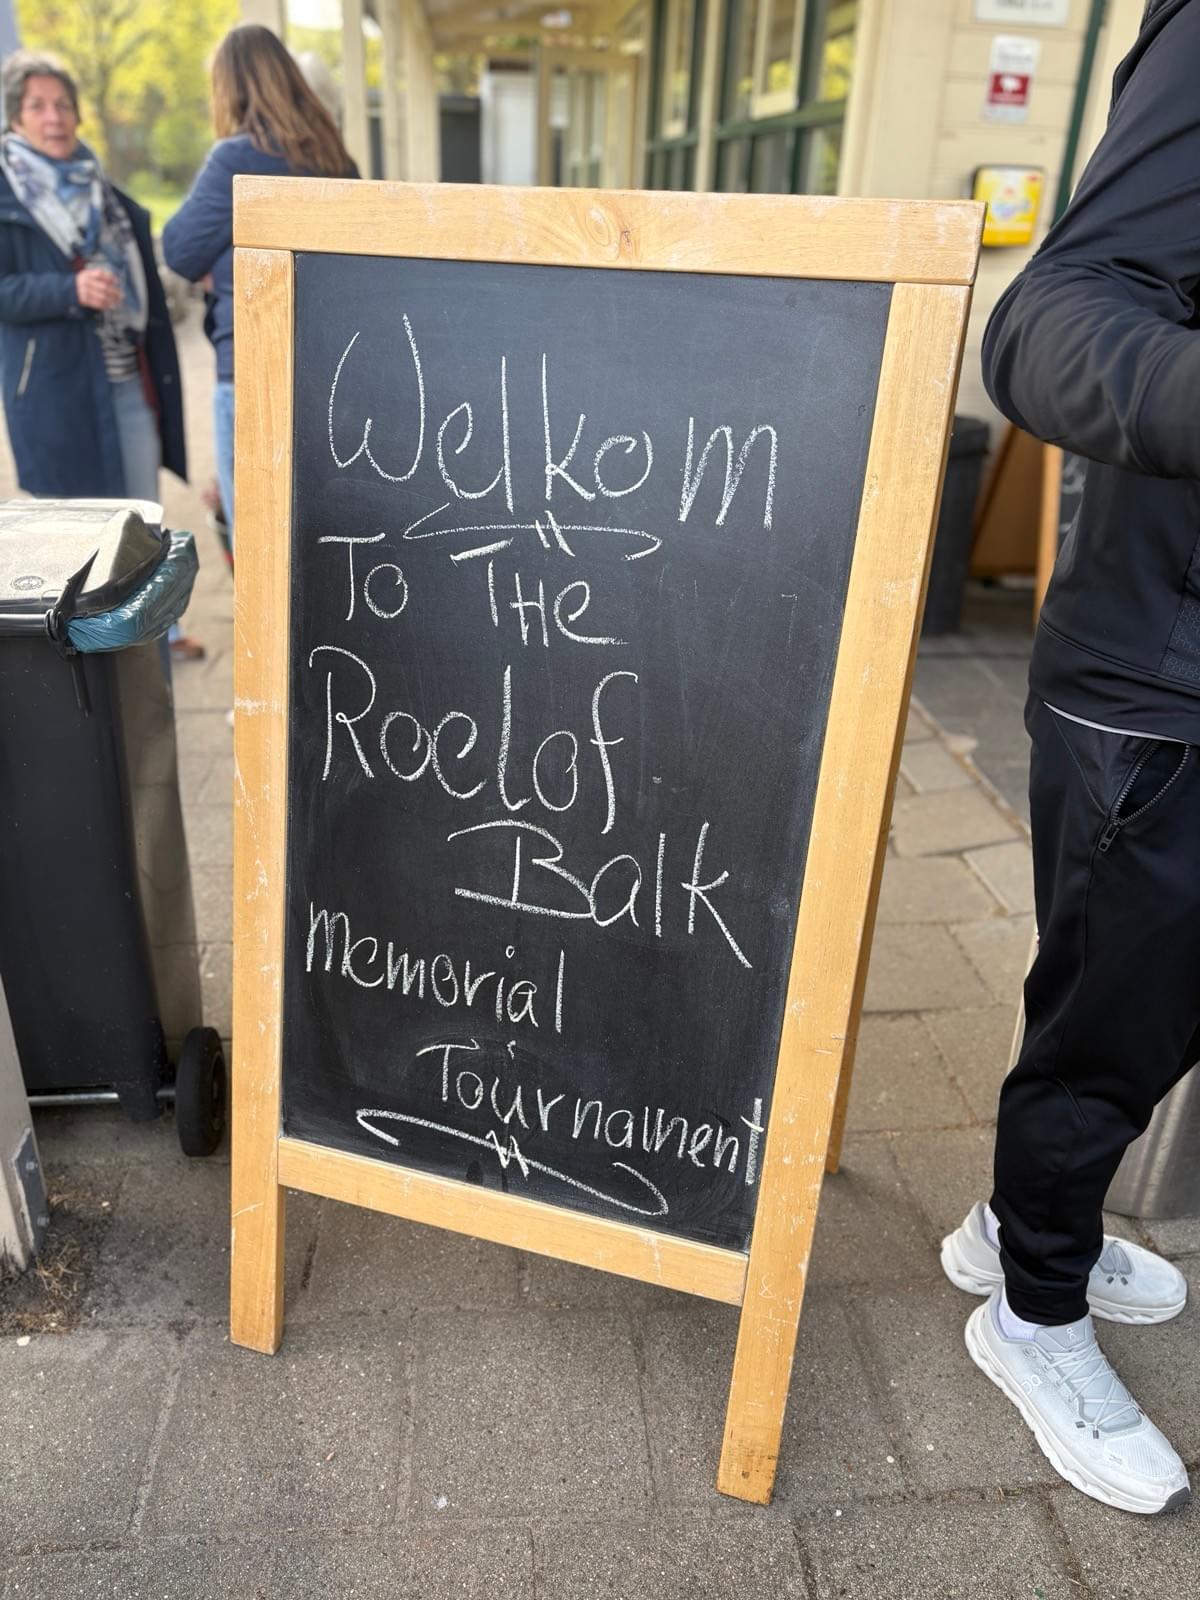 Welkom
To THe
Roelof
Balk
memorial
Tournament